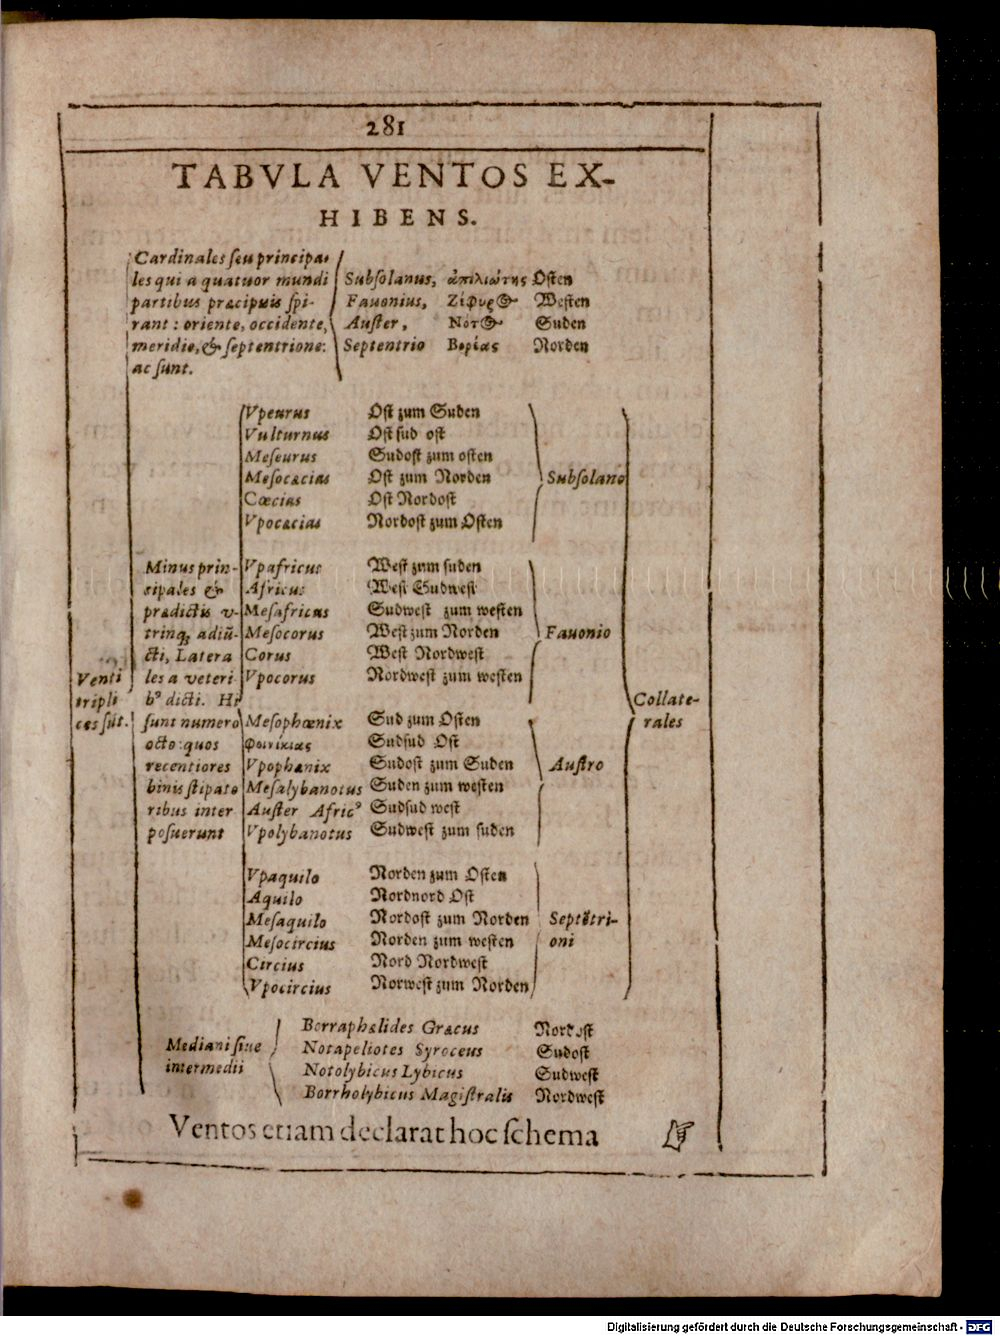 281
TABVLA VENTOS EX-
HIBENS.
Cardinales ſeu principa-
les qui a quatuor mundi
partibus præcipuis ſpi-
rant : oriente, occidente,
meridie, & ſeptentrione:
ac ſunt.
Subſolanus, ἀπιλιώτης Oſten
Fauonius, Ζίφυρος Weſten
Auſter, Νότος Suden
Septentrio Βορίας Norden
Venti
tripli
ces ſūt.
Minus prin-
cipales &
prædictis v-
trinq; adiū-
cti, Latera
les a veteri-
bꝰ dicti. Hi
ſunt numero
octo: quos
recentiores
binis ſtipato
ribus inter
poſuerunt
Vpeurus Oſt zum Suden
Vulturnus Oſt ſud oſt
Meſeurus Sudoſt zum oſten
Meſocæcias Oſt zum Norden
Cœcias Oſt Nordoſt
Vpocæcias Nordoſt zum Oſten
Subſolano
Vpafricus Weſt zum ſuden
Africus Weſt Sudweſt
Meſafricus Sudweſt zum weſten
Meſocorus Weſt zum Norden
Corus Weſt Nordweſt
Vpocorus Nordweſt zum weſten
Fauonio
Meſophœnix Sud zum Oſten
φοινίκιας Sudſud Oſt
Vpophænix Sudoſt zum Suden
Meſalybanotus Suden zum weſten
Auſter Africꝰ Sudſud weſt
Vpolybanotus Sudweſt zum ſuden
Auſtro
Vpaquilo Norden zum Oſten
Aquilo Nordnord Oſt
Meſaquilo Nordoſt zum Norden
Meſocircius Norden zum weſten
Circius Nord Nordweſt
Vpocircius Norweſt zum Norden
Septētri-
oni
Collate-
rales
Mediani ſiue
intermedii
Borraphælides Græcus Nordoſt
Notapeliotes Syroceus Sudoſt
Notolybicus Lybicus Sudweſt
Borrholybicus Magiſtralis Nordweſt
Ventos etiam declarat hoc ſchema ☞
Digitalisierung gefördert durch die Deutsche Forschungsgemeinschaft - DFG